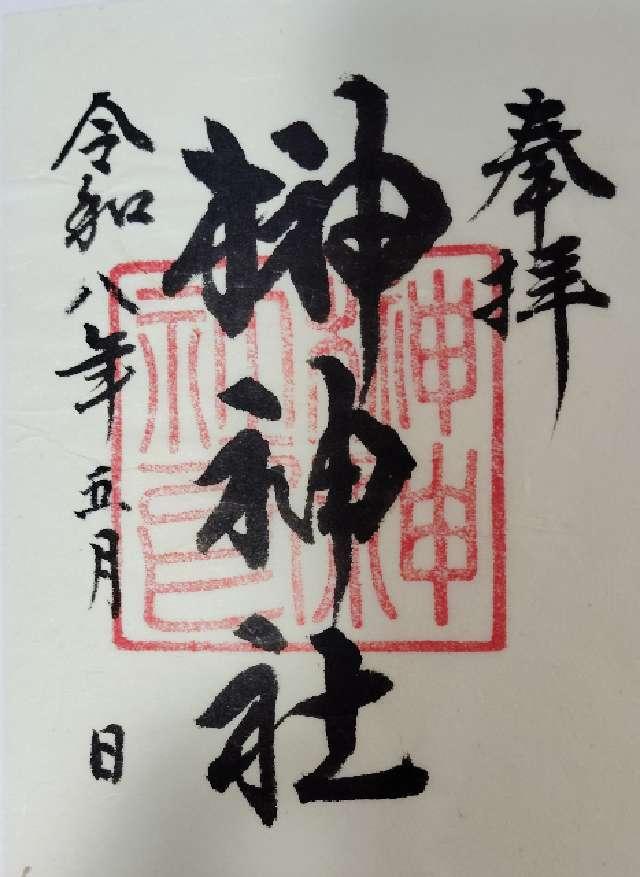 奉拝
榊神社
令和八年五月 日